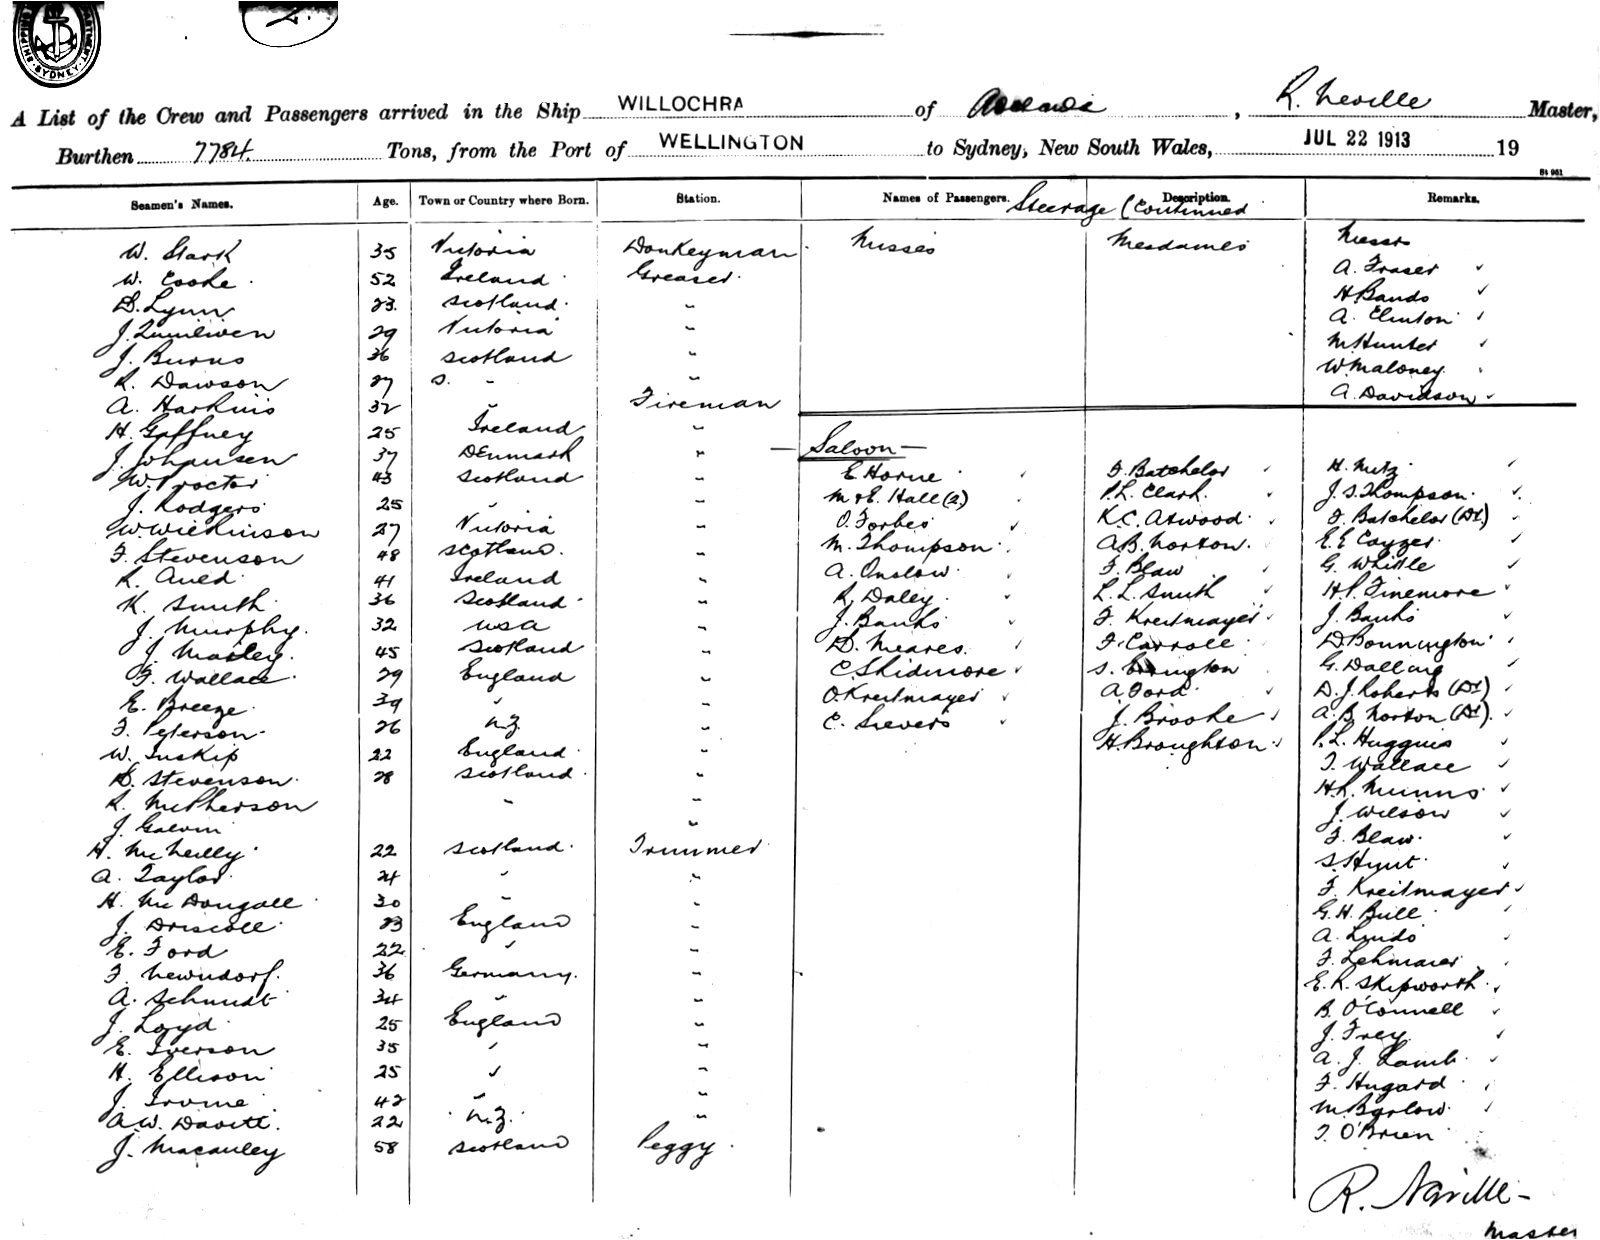 SYDNEY
2.
A List of the Crew and Passengers arrived in the Ship WILLOCHRA of Adelaide, R. Neville Master,
Burthen 7784. Tons, from the Port of WELLINGTON to Sydney, New South Wales, JUL 22 1913 19
Seamen's Names. Age. Town or Country where Born. Station. Names of Passengers. Steerage (Continued Description. Remarks.
W. Stark 35 Victoria Donkeyman Misses Mesdames Messrs
W. Cooke 52 Ireland Greaser A. Fraser
D. Lynn 23 Scotland " H. Bands
J. 29 Victoria " A. Clinton
J. Burns 36 Scotland " M. Hunter
R. Dawson 27 S. " " W. Maloney
A. Harkins 32 " Fireman A. Davidson
H. Gaffney 25 Ireland "
J. Johansen 37 Denmark " Saloon
W. Proctor 43 Scotland " E Horne F. Batchelor H. Metz
J. Rodgers 25 " " M & E. Hall (2) P.L. Clark J. S. Thompson
W. Wilkinson 27 Victoria " O. Forbes K.C. Atwood F. Batchelor (Dr)
F. Stevenson 48 Scotland " M. Thompson A.B. Norton E. E Cayzer
R. Auld 41 Ireland " A. Onslow F. Blaw G. Whittle
K. Smith 36 Scotland " R. Daley L. L. Smith H.P. Finemore
J. Murphy 32 USA " J. Banks F. Kreitmayer J. Banks
J. Mosley 45 Scotland " D. Meares F. Carroll D. Bonnington
F. Wallace 29 England " C. Skidmore S. G. Dalling
E. Breeze 39 " O. Kreitmayer A. Ford D. J. Roberts (Dr)
F. Peterson 26 N.Z. " C. Sievers J. Brooke A. B. Norton (Dr)
W. Inskip 22 England " H. Broughton P. L. Huggins
D. Stevenson 28 Scotland " T. Wallace
R. McPherson " " H.R. Munns
J. Galvin " J. Wilson
H. McNeilly 22 Scotland Trimmer F. Blaw
A. Taylor 24 " " S Hunt
H. McDougall 30 " F. Kreitmayer
J. Driscoll 23 England " G. H. Bull
E. Ford 22 " " A. Lindo
F. Newndorf 36 Germany " F. Lehmaier
A. Schmidt 34 " " E. R. Skipworth
J. Loyd 25 England " B. O'Connell
E. Iverson 35 " " J. Frey
H. Ellison 25 " " A. J. Lamb
J. Irvine 42 " F. Hugard
A. W. Davitt 22 N.Z. " M. Barlow
J. Macauley 58 Scotland Peggy T. O'Brien
R. Neville
Master